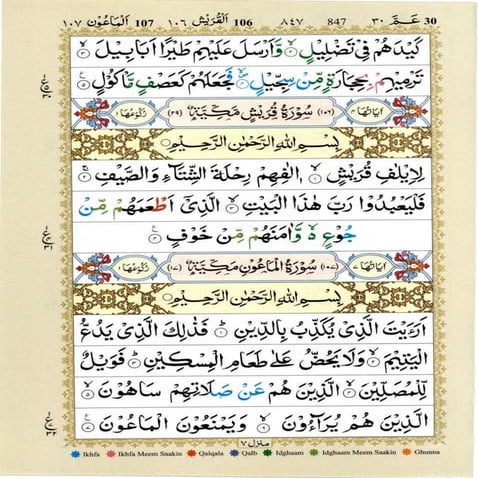 ١٠٧ اَلْمَاعُوْن 107 ١٠٦ اَلْقُرَيْش 106 ٨٤٧ 847 ٣٠ عَـمّ 30
كَيْدَهُمْ فِيْ تَضْلِيْلٍ ۙ۲ وَّاَرْسَلَ عَلَيْهِمْ طَيْرًا اَبَابِيْلَ ۙ۳
تَرْمِيْهِمْ بِحِجَارَةٍ مِّنْ سِجِّيْلٍ ۙ۴ فَجَعَلَهُمْ كَعَصْفٍ مَّاْكُوْلٍ ۵
اٰيَاتُهَا ۴ (١٠٦) سُوْرَةُ قُرَيْشٍ مَكِّيَّةٌ (٢٩) رُكُوْعُهَا ١
بِسْمِ اللّٰهِ الرَّحْمٰنِ الرَّحِيْمِ
لِاِيْلٰفِ قُرَيْشٍ ۙ۱ اٖلٰفِهِمْ رِحْلَةَ الشِّتَآءِ وَالصَّيْفِ ۚ۲
فَلْيَعْبُدُوْا رَبَّ هٰذَا الْبَيْتِ ۙ۳ الَّذِيْٓ اَطْعَمَهُمْ مِّنْ
جُوْعٍ ۙ۵ وَّاٰمَنَهُمْ مِّنْ خَوْفٍ ۴
اٰيَاتُهَا ٧ (١٠٧) سُوْرَةُ الْمَاعُوْنِ مَكِّيَّةٌ (١٧) رُكُوْعُهَا ١
بِسْمِ اللّٰهِ الرَّحْمٰنِ الرَّحِيْمِ
اَرَءَيْتَ الَّذِيْ يُكَذِّبُ بِالدِّيْنِ ۱ فَذٰلِكَ الَّذِيْ يَدُعُّ
الْيَتِيْمَ ۙ۲ وَلَا يَحُضُّ عَلٰى طَعَامِ الْمِسْكِيْنِ ۳ فَوَيْلٌ
لِّلْمُصَلِّيْنَ ۙ۴ الَّذِيْنَ هُمْ عَنْ صَلَاتِهِمْ سَاهُوْنَ ۙ۵
الَّذِيْنَ هُمْ يُرَآءُوْنَ ۙ۶ وَيَمْنَعُوْنَ الْمَاعُوْنَ ۷
منزل ٧
Ikhfa Ikhfa Meem Saakin Qalqala Qalb Idghaam Idghaam Meem Saakin Ghunna